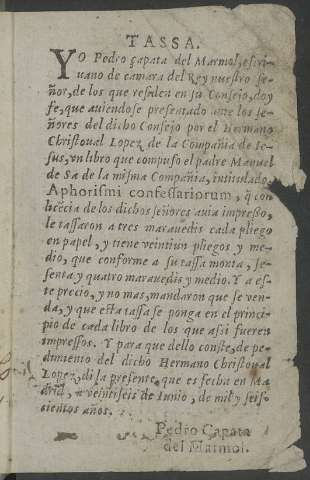 TASSA.
YO Pedro çapata del Marmol, escri-
uano de camara del Rey nuestro se-
ñor, de los que residen en su Consejo, doy
fe, que auiendose presentado ante los se-
ñores del dicho Consejo por el Hermano
Christoual Lopez de la Compañia de Ie-
sus, vn libro que compuso el padre Manuel
de Sa de la misma Compañia, intitulado,
Aphorismi confessariorum, q̃ con
licẽcia de los dichos señores auia impresso,
le tassaron a tres marauedis cada pliego
en papel, y tiene veintiun pliegos y me-
dio, que conforme a su tassa monta, se-
senta y quatro marauedis y medio. Y a es-
te precio, y no mas, mandaron que se ven-
da, y que esta tassa se ponga en el princi-
pio de cada libro de los que assi fueren
impressos. Y para que dello conste, de pe-
dimiento del dicho Hermano Christoual
Lopez, di la presente, que es fecha en Ma-
drid, a veintiseis de Iunio, de mil y seis-
cientos años.
Pedro Çapata
del Marmol.